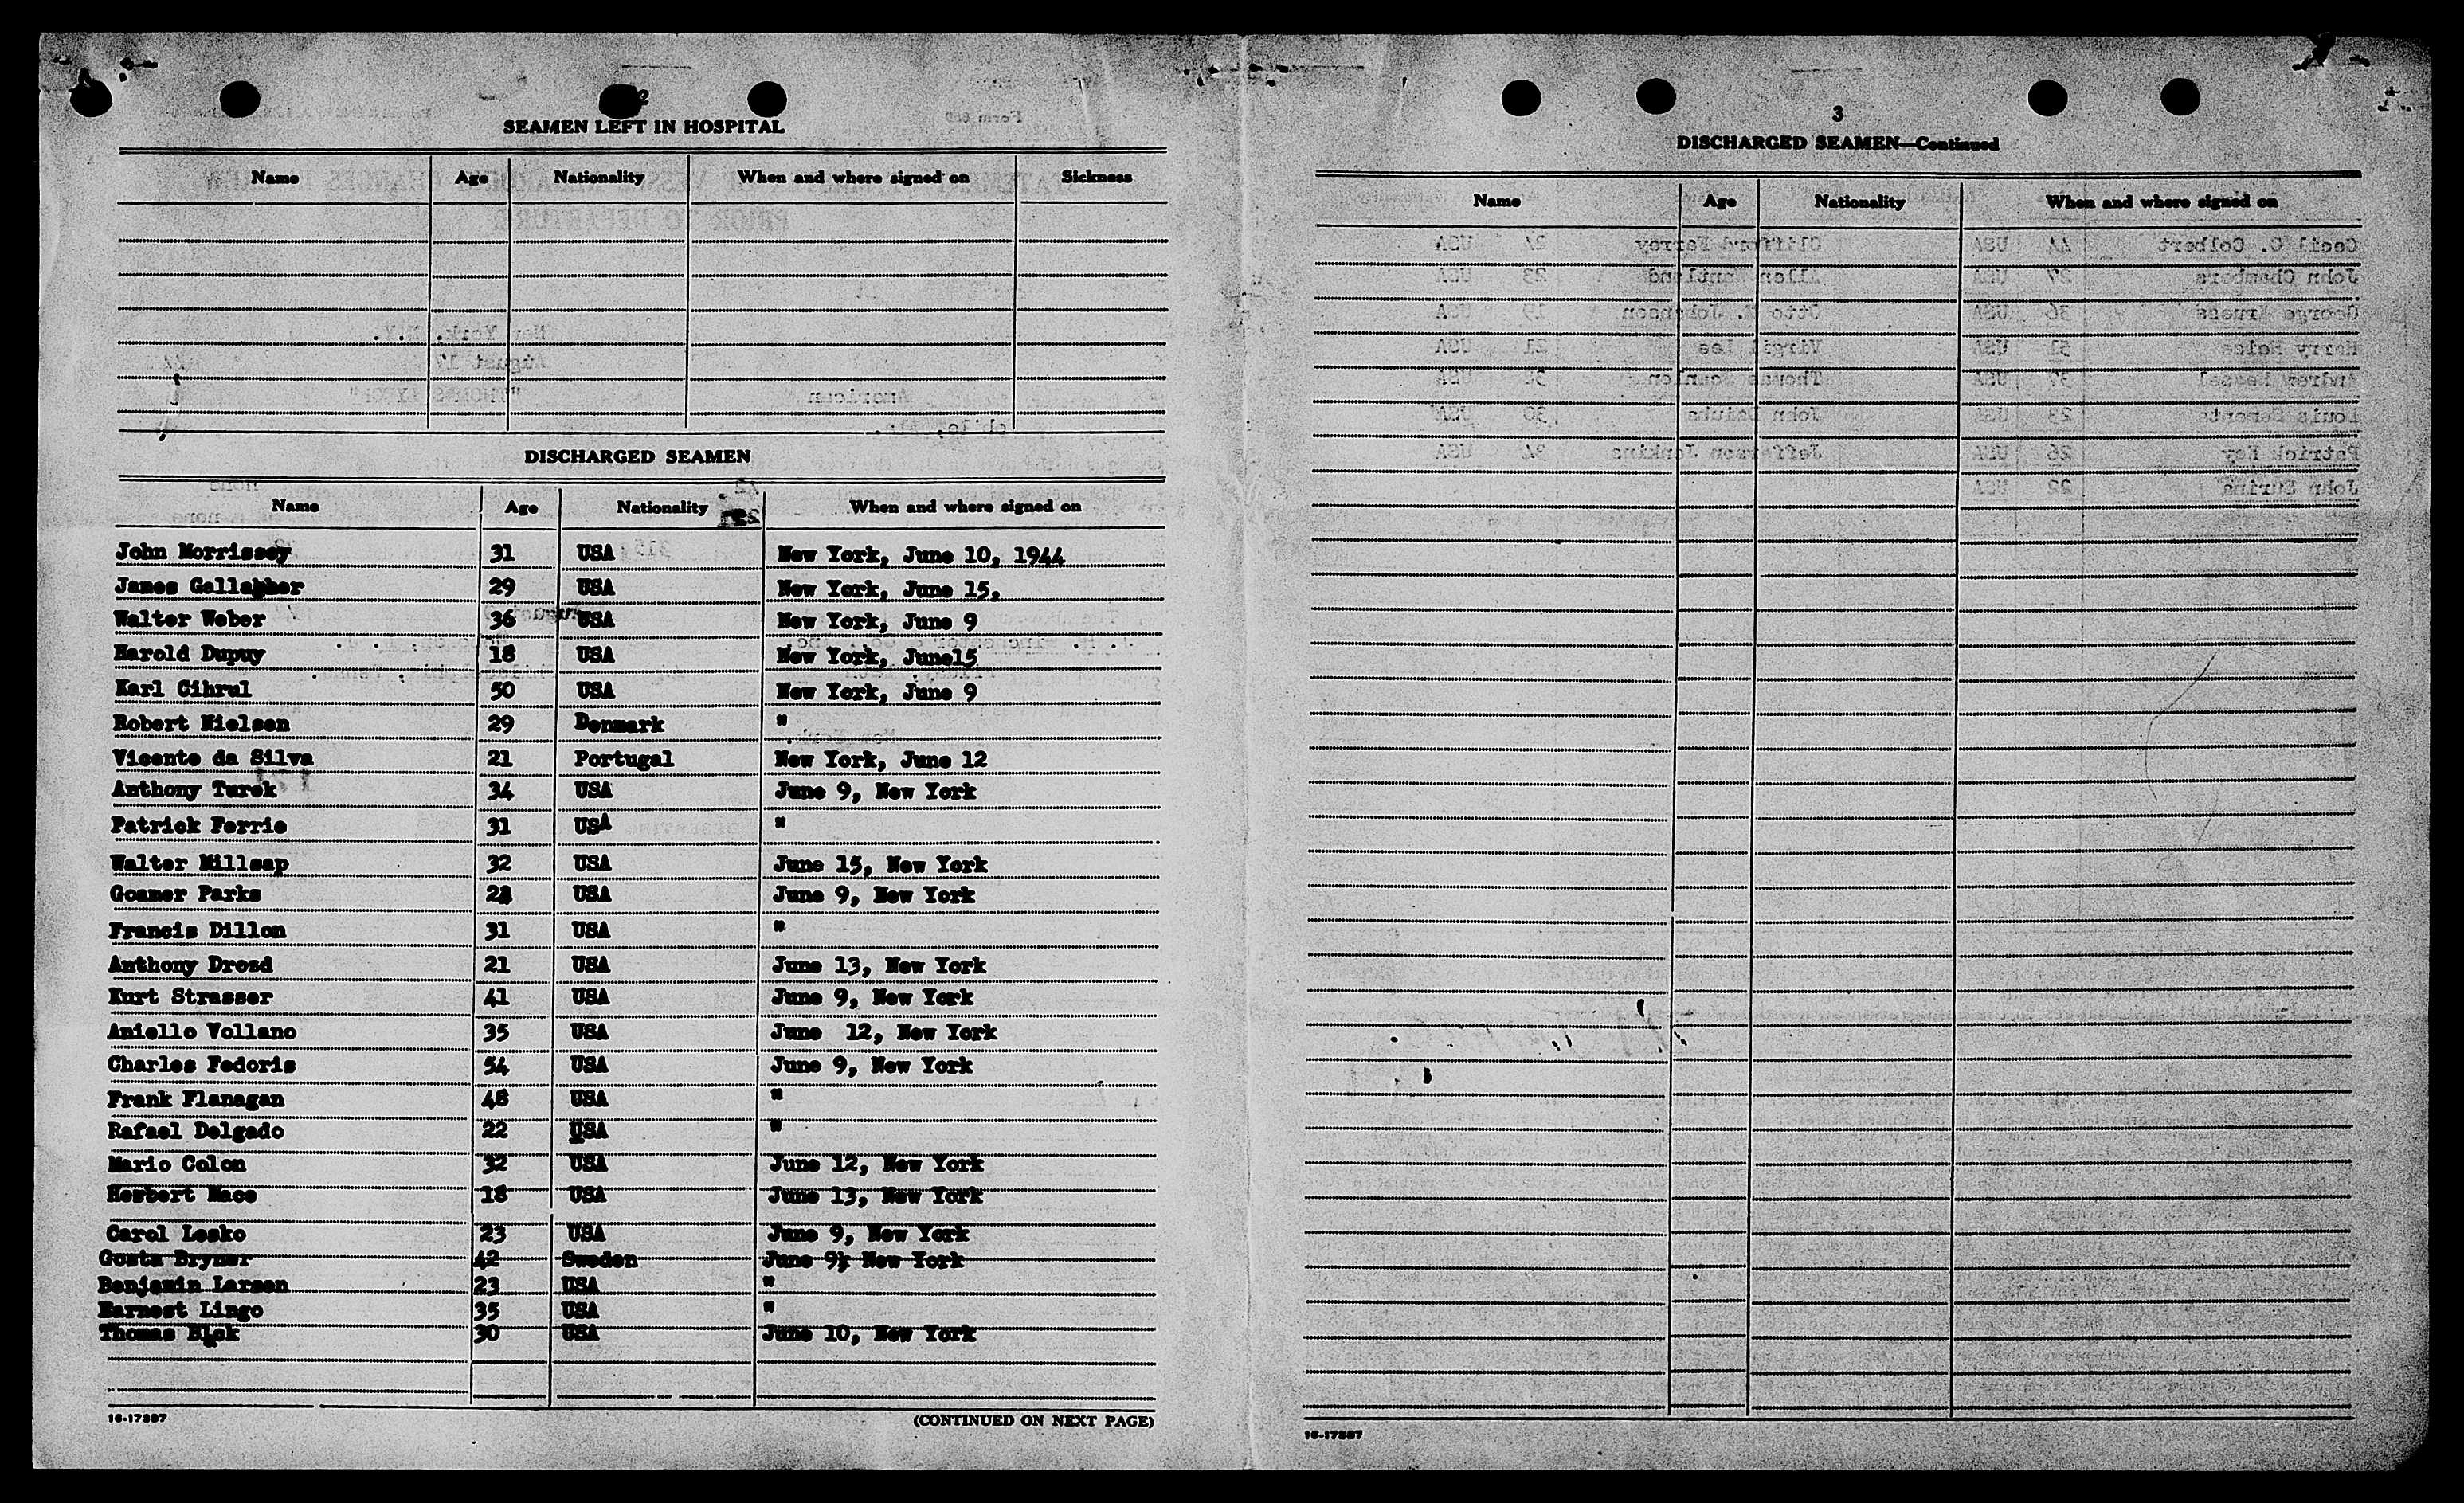 2
SEAMEN LEFT IN HOSPITAL
Name Age Nationality When and where signed on Sickness
DISCHARGED SEAMEN
Name Age Nationality When and where signed on
John Morrissey 31 USA New York, June 10, 1944
James Gallagher 29 USA New York, June 15,
Walter Weber 36 USA New York, June 9
Harold Dupuy 18 USA New York, June15
Karl Cihrul 50 USA New York, June 9
Robert Nielsen 29 Denmark "
Vicente da Silva 21 Portugal New York, June 12
Anthony Turek 34 USA June 9, New York
Patrick Ferrie 31 USA "
Walter Millsap 32 USA June 15, New York
Goamer Parks USA June 9, New York
Francis Dillon 31 USA "
Anthony Drozd 21 USA June 13, New York
Kurt Strasser 41 USA June 9, New York
Aniello Vollano 35 USA June 12, New York
Charles Fedoris 54 USA June 9, New York
Frank Flanagan 48 USA "
Rafael Delgado 22 USA "
Mario Colon 32 USA June 12, New York
Herbert Mace 18 USA June 13, New York
Carol Lesko 23 USA June 9, New York
Gosta Bryner 42 Sweden June 9, New York
Benjamin Larsen 23 USA "
Earnest Lingo 35 USA "
Thomas 30 USA June 10, New York
16-17387 (CONTINUED ON NEXT PAGE)
3
DISCHARGED SEAMEN—Continued
Name Age Nationality When and where signed on
16-17387